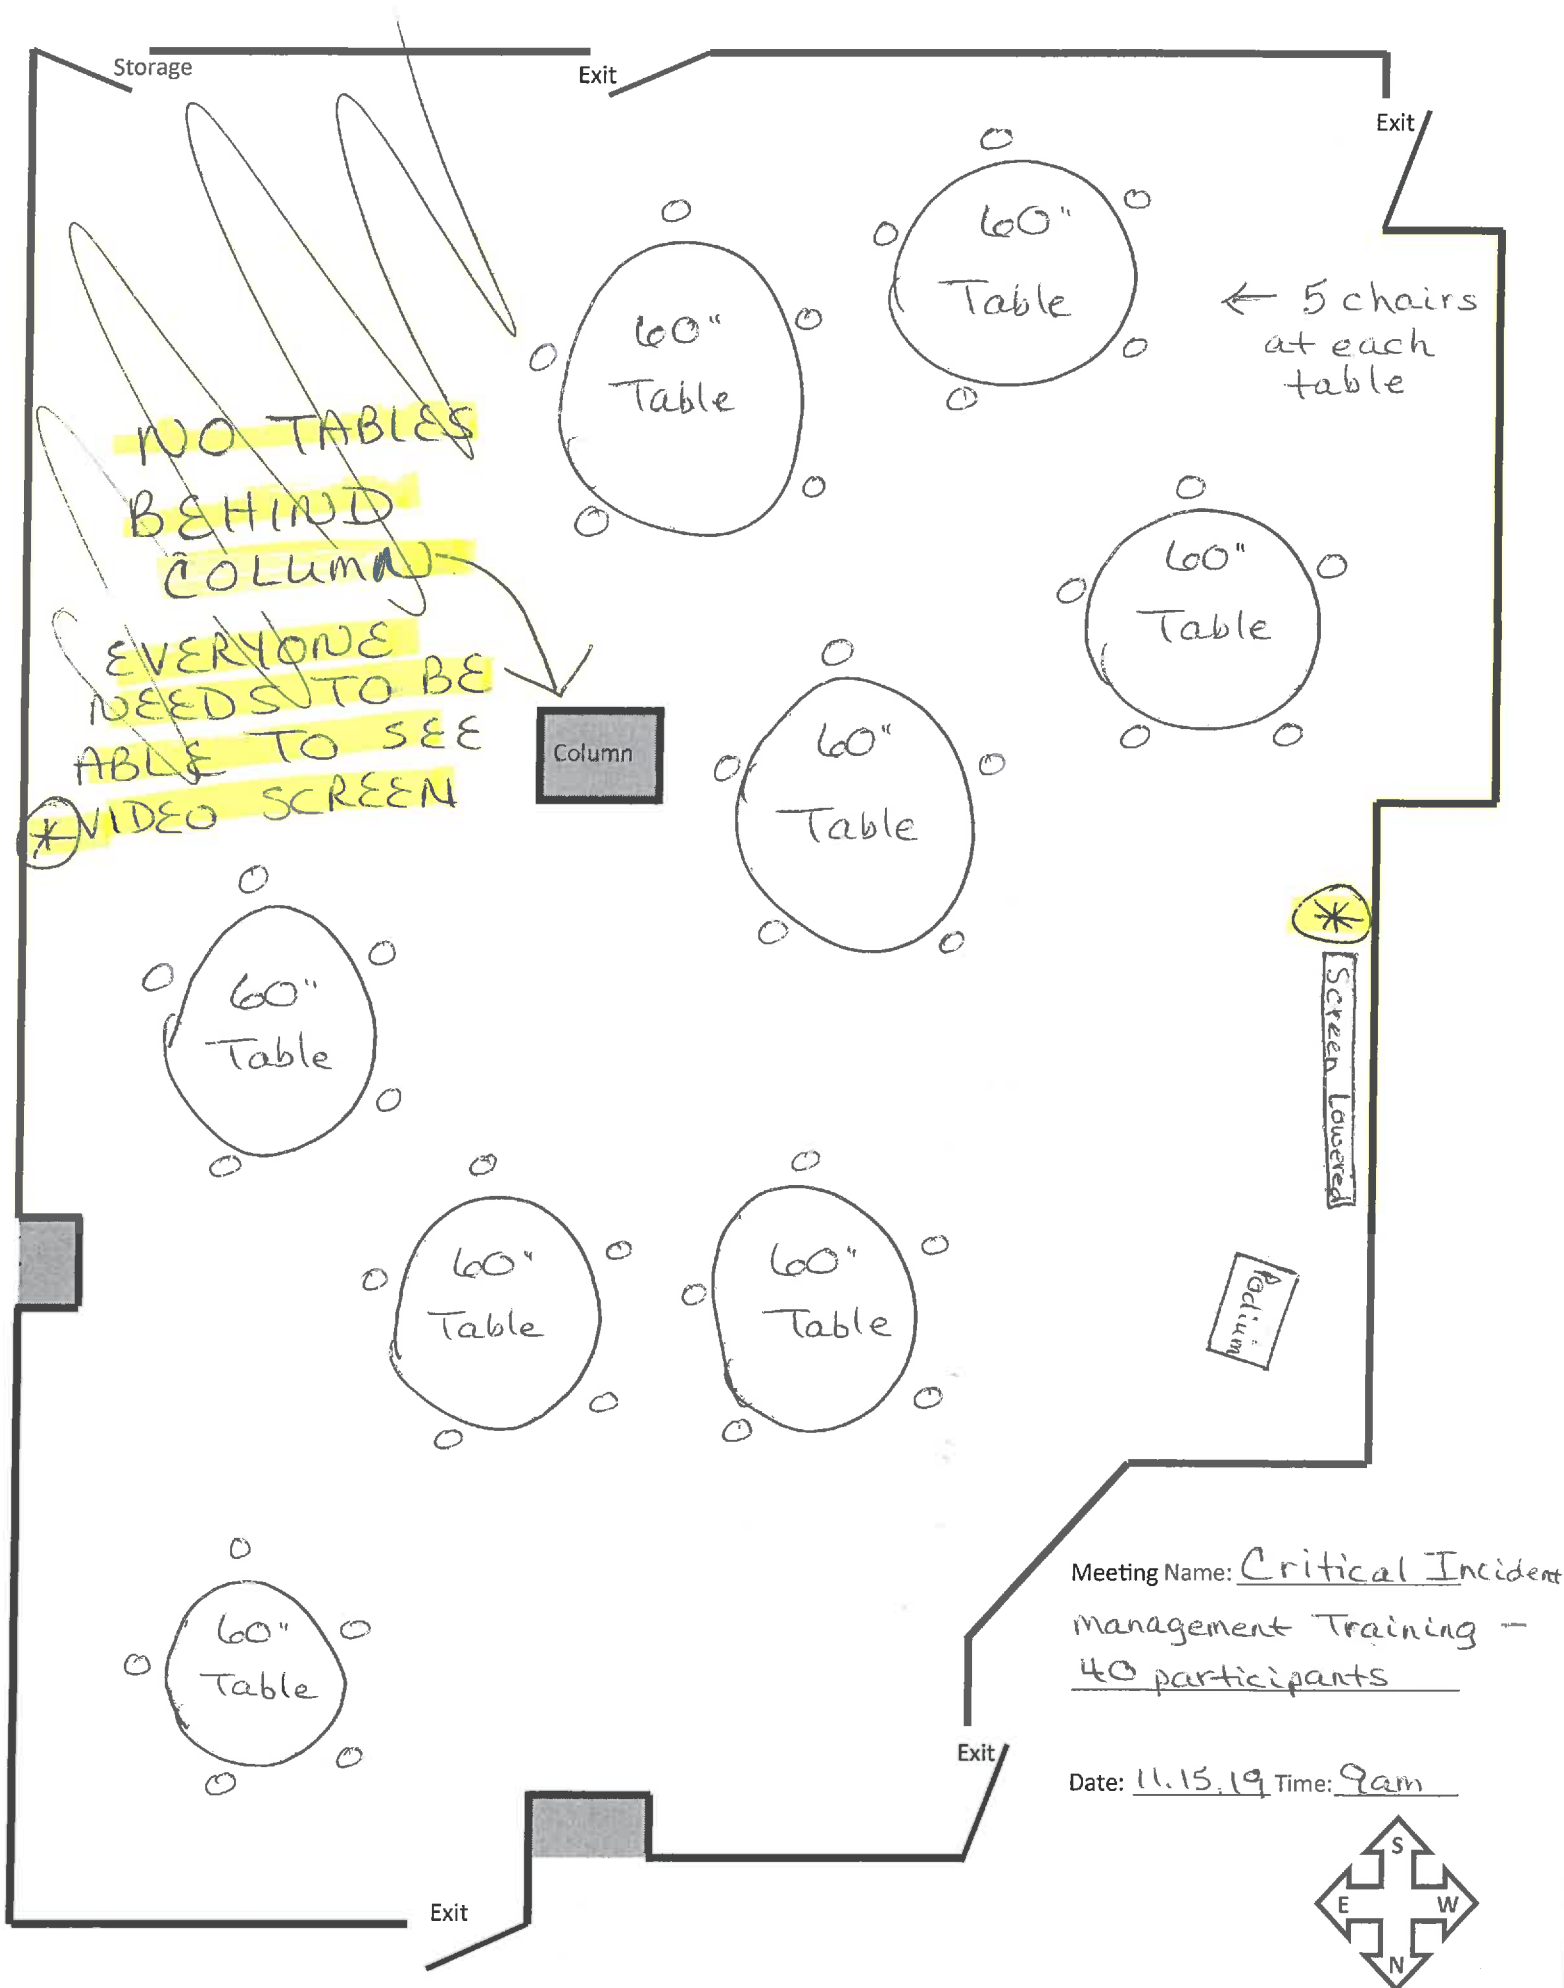 Storage
Exit
Exit
60"
Table
60"
Table
← 5 chairs
at each
table
NO TABLES
BEHIND
COLUMN
EVERYONE
NEEDS TO BE
ABLE TO SEE
* VIDEO SCREEN
Column
60"
Table
60"
Table
*
Screen Lowered
60"
Table
60"
Table
60"
Table
Podium
60"
Table
Meeting Name: Critical Incident
Management Training -
40 participants
Exit
Date: 11.15.19 Time: 9am
Exit
S
E W
N